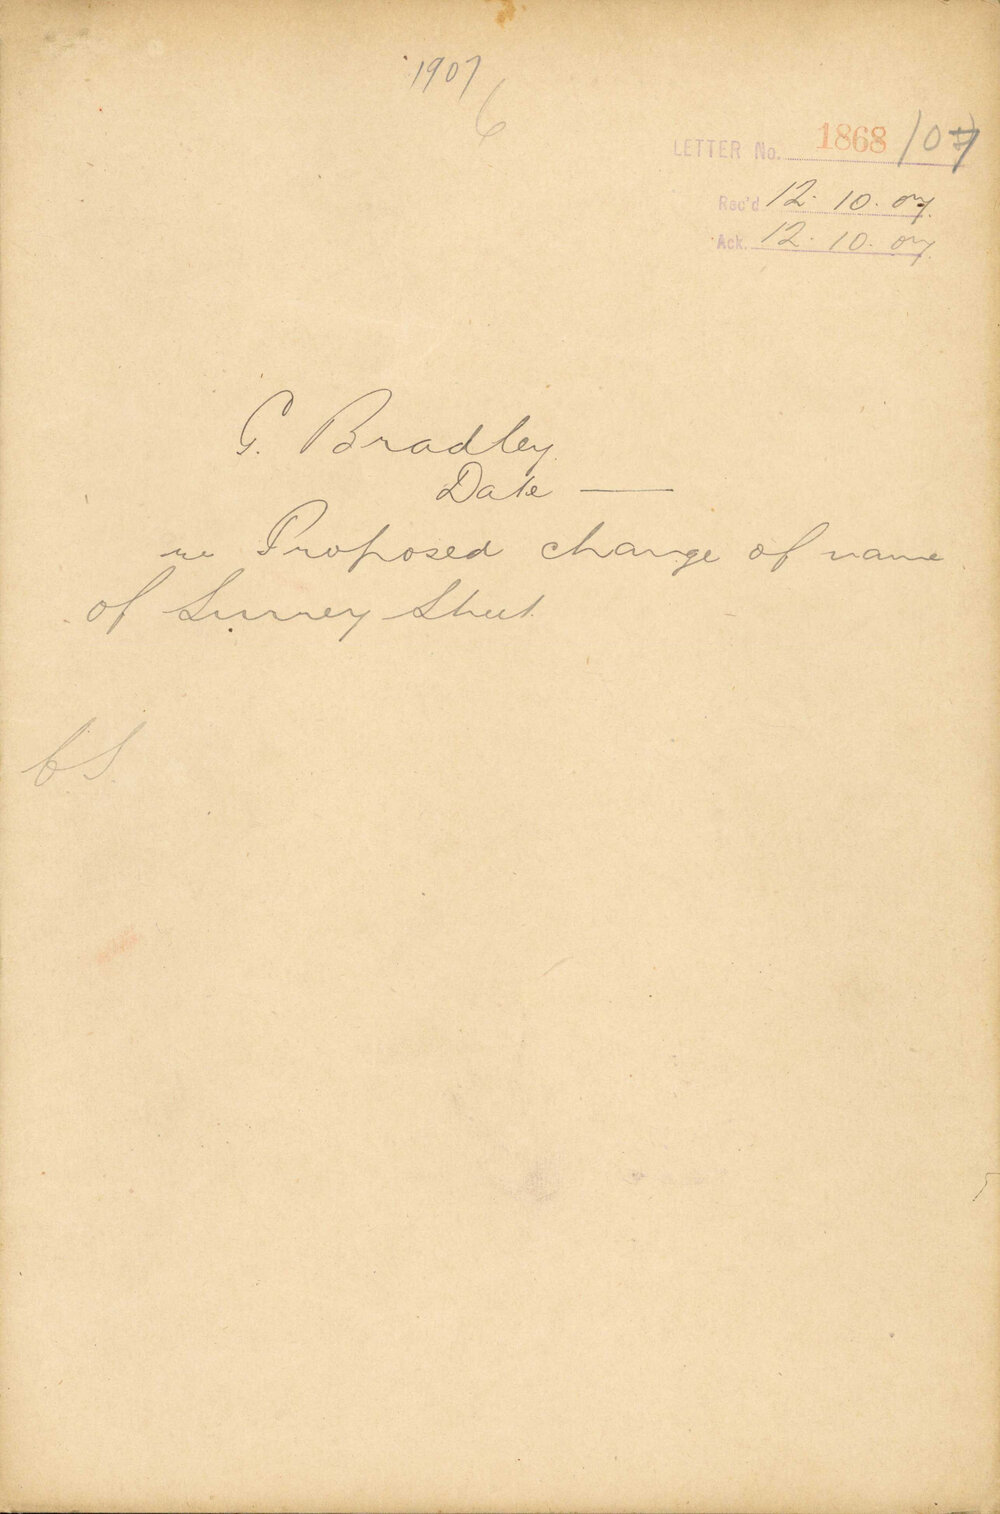 1907
6
LETTER No. 1868/07
Rec'd 12. 10. 07.
Ack. 12. 10. 07.
G. Bradley
Date —
re Proposed change of name
of Surrey Street